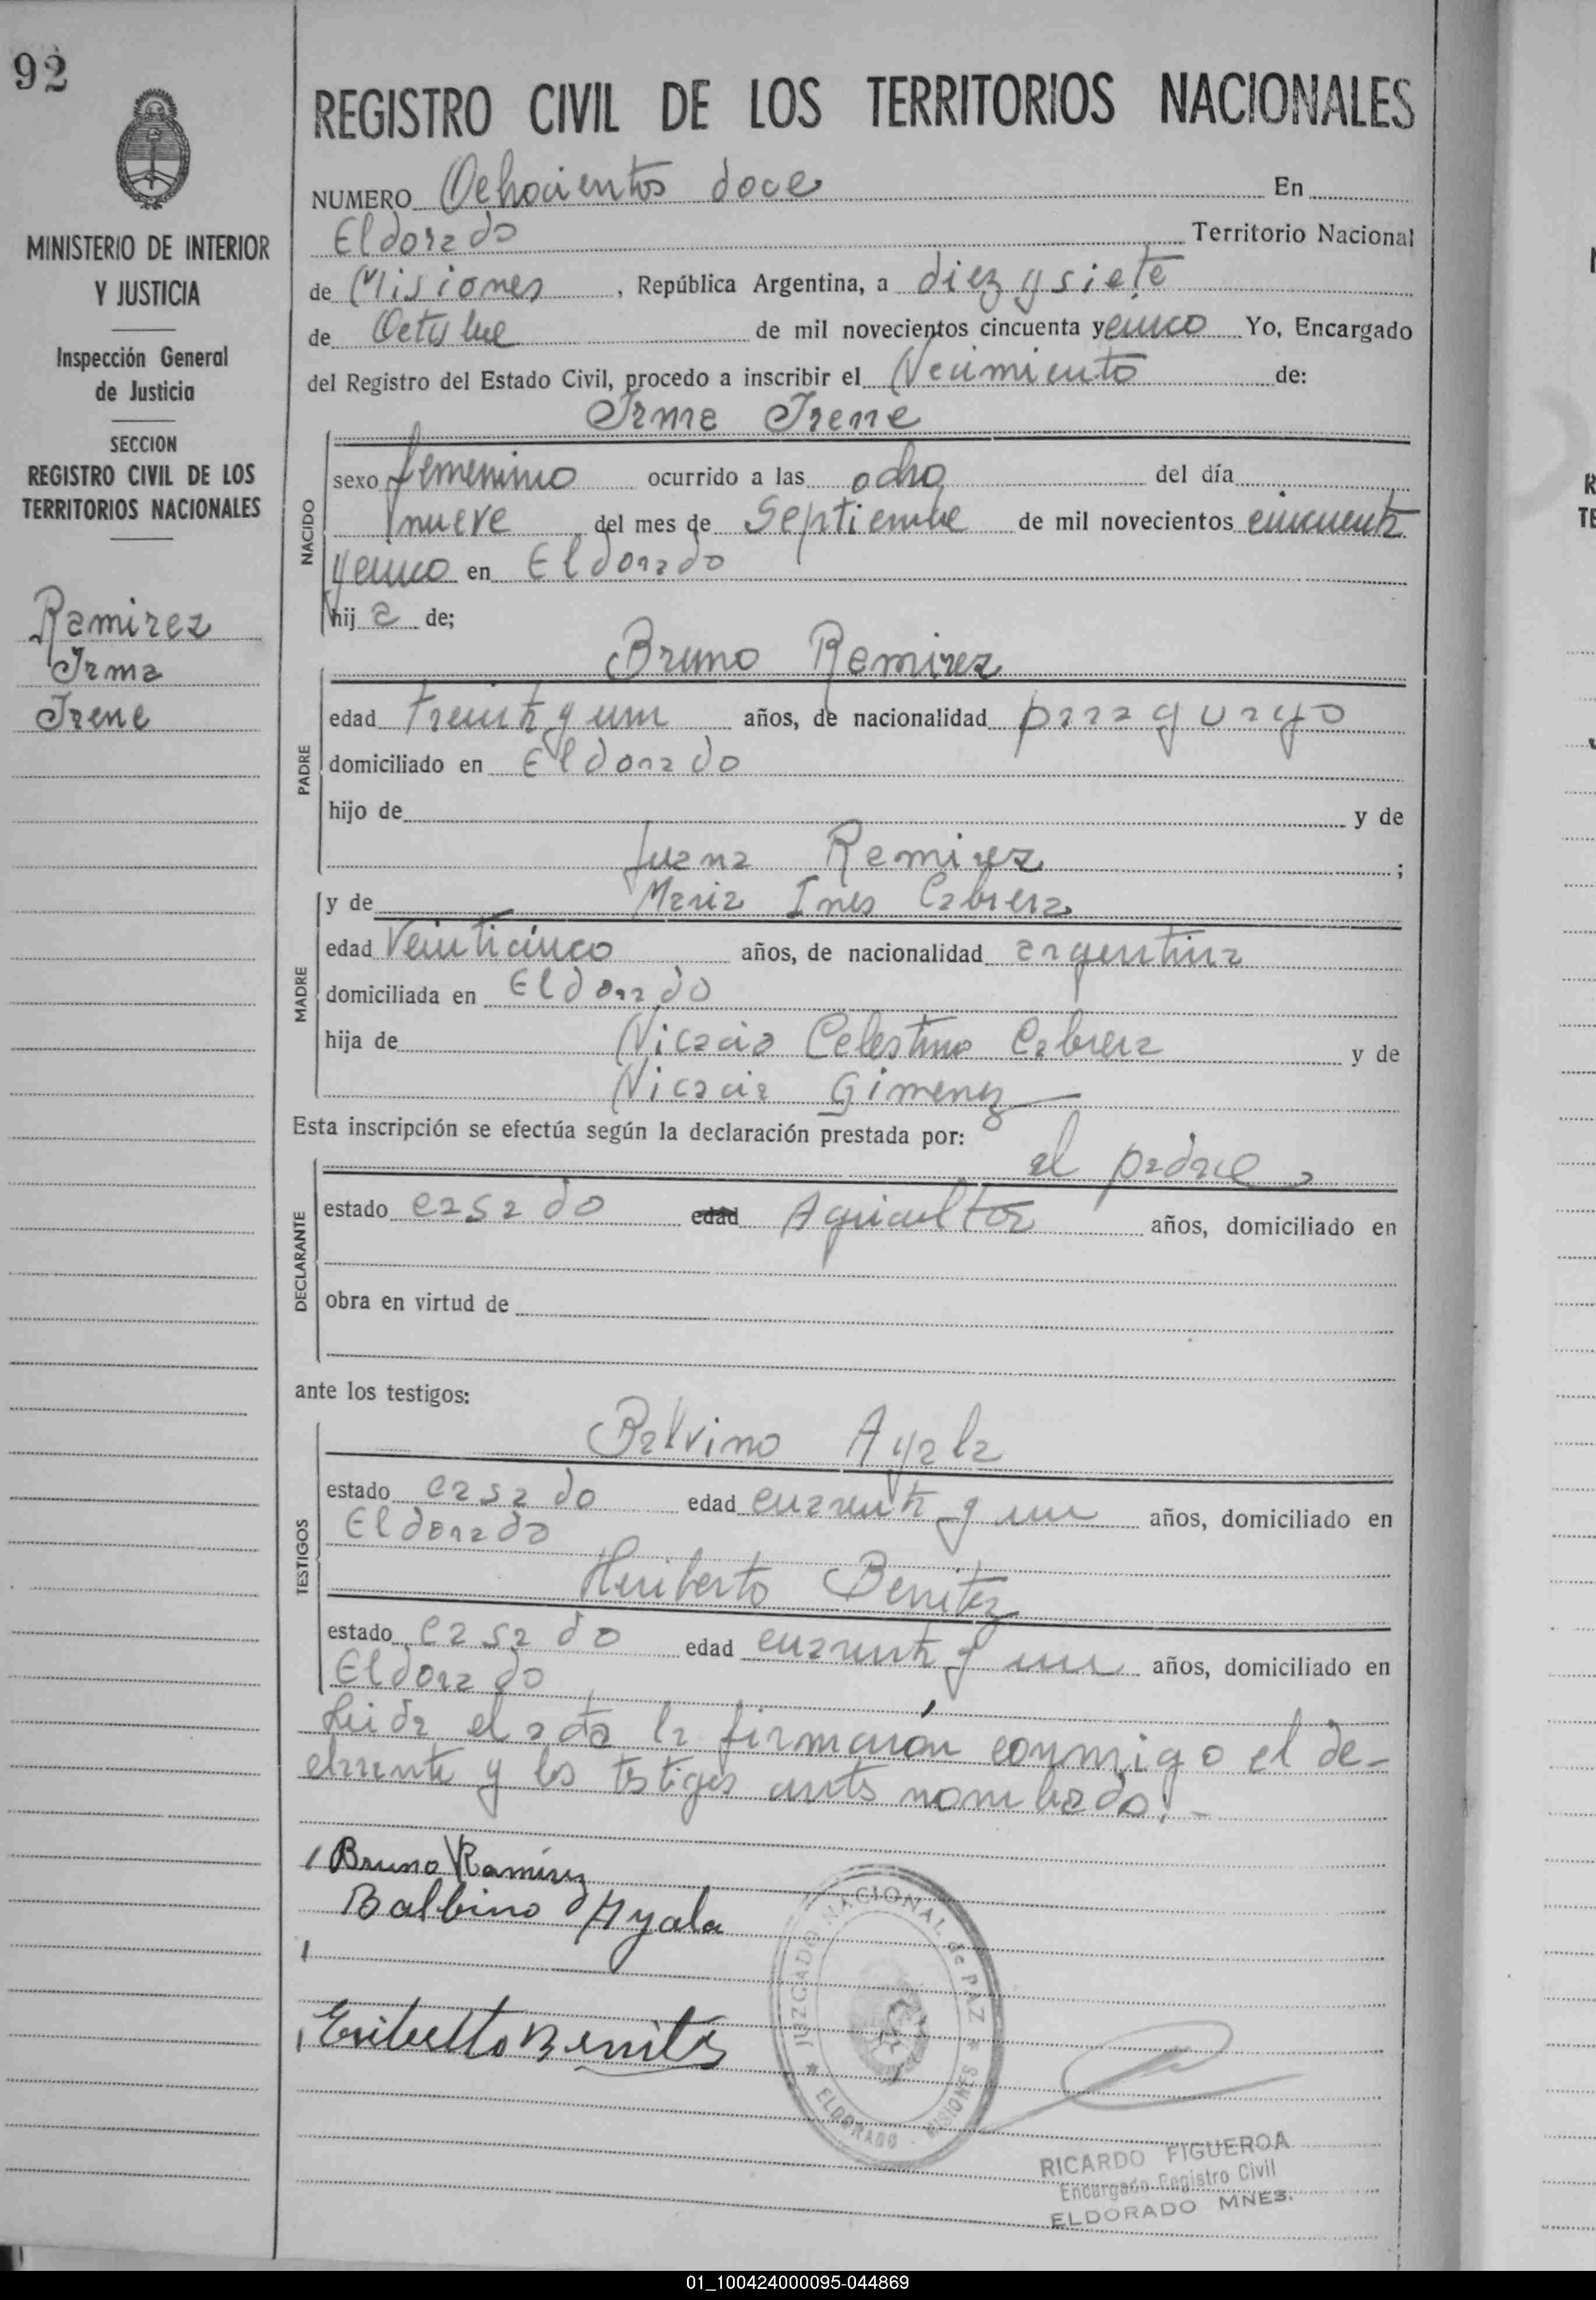 92
MINISTERIO DE INTERIOR
Y JUSTICIA
Inspección General
de Justicia
SECCION
REGISTRO CIVIL DE LOS
TERRITORIOS NACIONALES
Ramirez
Irma
Irene
REGISTRO CIVIL DE LOS TERRITORIOS NACIONALES
NUMERO Ochocientos doce En
Eldorado Territorio Nacional
de Misiones, República Argentina, a diez y siete
de Octubre de mil novecientos cincuenta y cinco Yo, Encargado
del Registro del Estado Civil, procedo a inscribir el Nacimiento de:
Irma Irene
NACIDO
sexo femenino ocurrido a las ocho del día
nueve del mes de Septiembre de mil novecientos cincuenta
y cinco en Eldorado
hija de;
Bruno Ramirez
PADRE
edad treinta y un años, de nacionalidad paraguayo
domiciliado en Eldorado
hijo de y de
Juana Ramirez ;
y de Maria Ines Cabrera
MADRE
edad Veinticinco años, de nacionalidad argentina
domiciliada en Eldorado
hija de Nicacio Celestino Cabrera y de
Nicacia Gimenez
Esta inscripción se efectúa según la declaración prestada por:
el padre
DECLARANTE
estado casado edad Agricultor años, domiciliado en
obra en virtud de
ante los testigos:
Balvino Ayala
TESTIGOS
estado casado edad cuarenta y un años, domiciliado en
Eldorado
Heriberto Benitez
estado casado edad cuarenta y un años, domiciliado en
Eldorado
Leida el acta la firmaron conmigo el de-
clarante y los testigos
Bruno Ramírez
Balbino Ayala
Benitez
JUZGADO NACIONAL de PAZ * ELDORADO - MISIONES *
RICARDO FIGUEROA
Encargado Registro Civil
ELDORADO MNES.
01_100424000095-044869